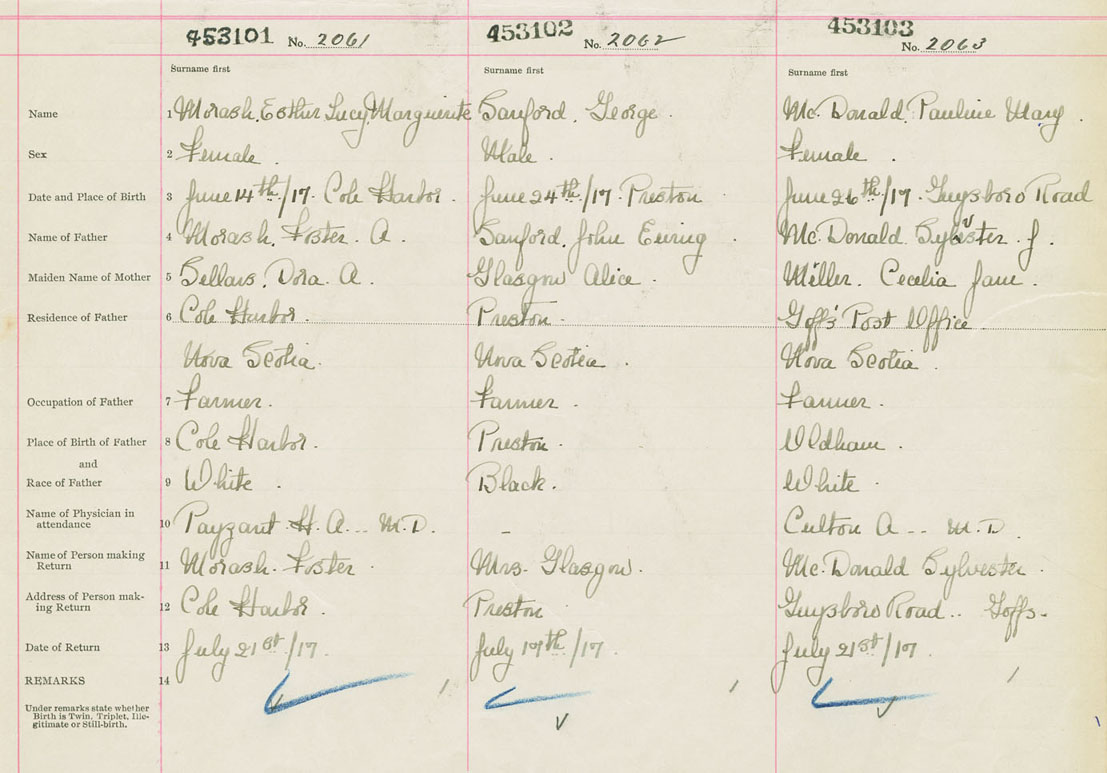 453101 No. 2061 453102 No. 2062 453103 No. 2063
Surname first Surname first Surname first
Name 1 Morash, Esther Lucy Marguerite Sanford, George. Mc. Donald, Pauline Mary.
Sex 2 Female. Male. Female.
Date and Place of Birth 3 June 14th/17. Cole Harbor. June 24th/17. Preston June 26th/17. Guysboro Road
Name of Father 4 Morash, Foster. A. Sanford, John Mc. Donald Sylvester. J.
Maiden Name of Mother 5 Sellars, Dora. A. Glasgow Alice. Miller. Cecelia Jane.
Residence of Father 6 Cole Harbor. Preston. Goffs' Post Office.
Nova Scotia. Nova Scotia. Nova Scotia.
Occupation of Father 7 Farmer. Farmer. Farmer.
Place of Birth of Father 8 Cole Harbor. Preston. Oldham.
and
Race of Father 9 White. Black. White.
Name of Physician in
attendance 10 Payzant H. A. M.D. - A M.D.
Name of Person making
Return 11 Morash. Foster. Mrs. Glasgow. Mc. Donald Sylvester.
Address of Person mak-
ing Return 12 Cole Harbor. Preston Guysboro Road.. Goffs.
Date of Return 13 July 21st/17. July 19th/17. July 21st/17.
REMARKS 14
Under remarks state whether
Birth is Twin, Triplet, Ille-
gitimate or Still-birth.